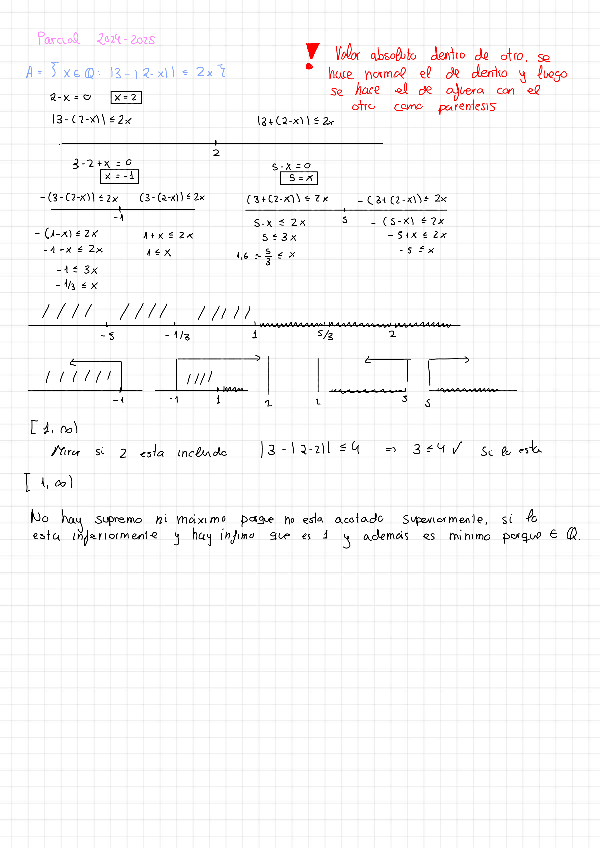 Parcial 2024-2025
! Valor absoluto dentro de otro, se
hace normal el de dentro y luego
se hace el de afuera con el
otro como parentesis
A = { x ∈ Q : |3-|2-x|| ≤ 2x }
2-x = 0 x = 2
|3-(2-x)| ≤ 2x |3+(2-x)| ≤ 2x
2
3-2+x = 0 5-x = 0
x = -1 5 = x
-(3-(2-x)) ≤ 2x (3-(2-x)) ≤ 2x (3+(2-x)) ≤ 2x -(3+(2-x)) ≤ 2x
-1 5
-(1-x) ≤ 2x 1+x ≤ 2x 5-x ≤ 2x -(5-x) ≤ 2x
-1-x ≤ 2x 1 ≤ x 5 ≤ 3x -5+x ≤ 2x
-1 ≤ 3x 1,6 ≈ 5/3 ≤ x -5 ≤ x
-1/3 ≤ x
-5 -1/3 1 5/3 2
-1 -1 1 2 2 5 5
[1, ∞)
Mirar si 2 esta incluido |3-|2-2|| ≤ 4 ⇒ 3 ≤ 4 ✓ Si lo esta
[1, ∞)
No hay supremo ni máximo porque no esta acotado superiormente, si lo
esta inferiormente y hay ínfimo que es 1 y además es minimo porque ∈ Q.